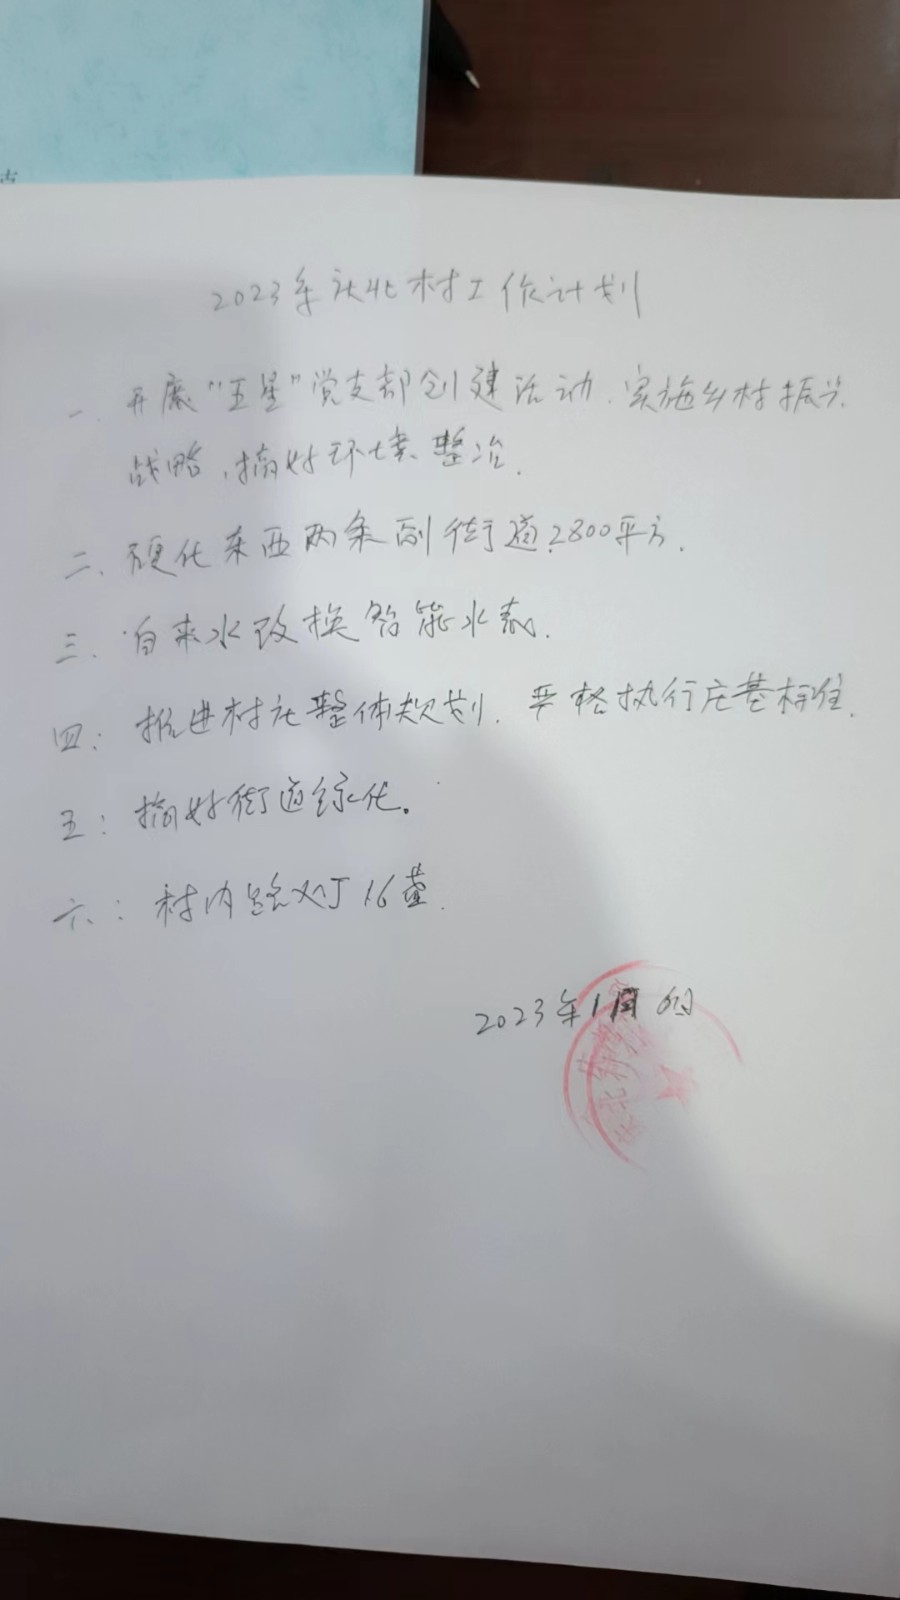 2023年 北村工作计划
一、开展“五星”党支部创建活动.实施乡村振兴
战略,搞好环境整治.
二、硬化东西两条副街道2800平方.
三、自来水改换智能水表.
四:推进村庄整体规划.严格执行庄基标准.
五:搞好街道绿化。
六:村内路灯16盏.
2023年1月